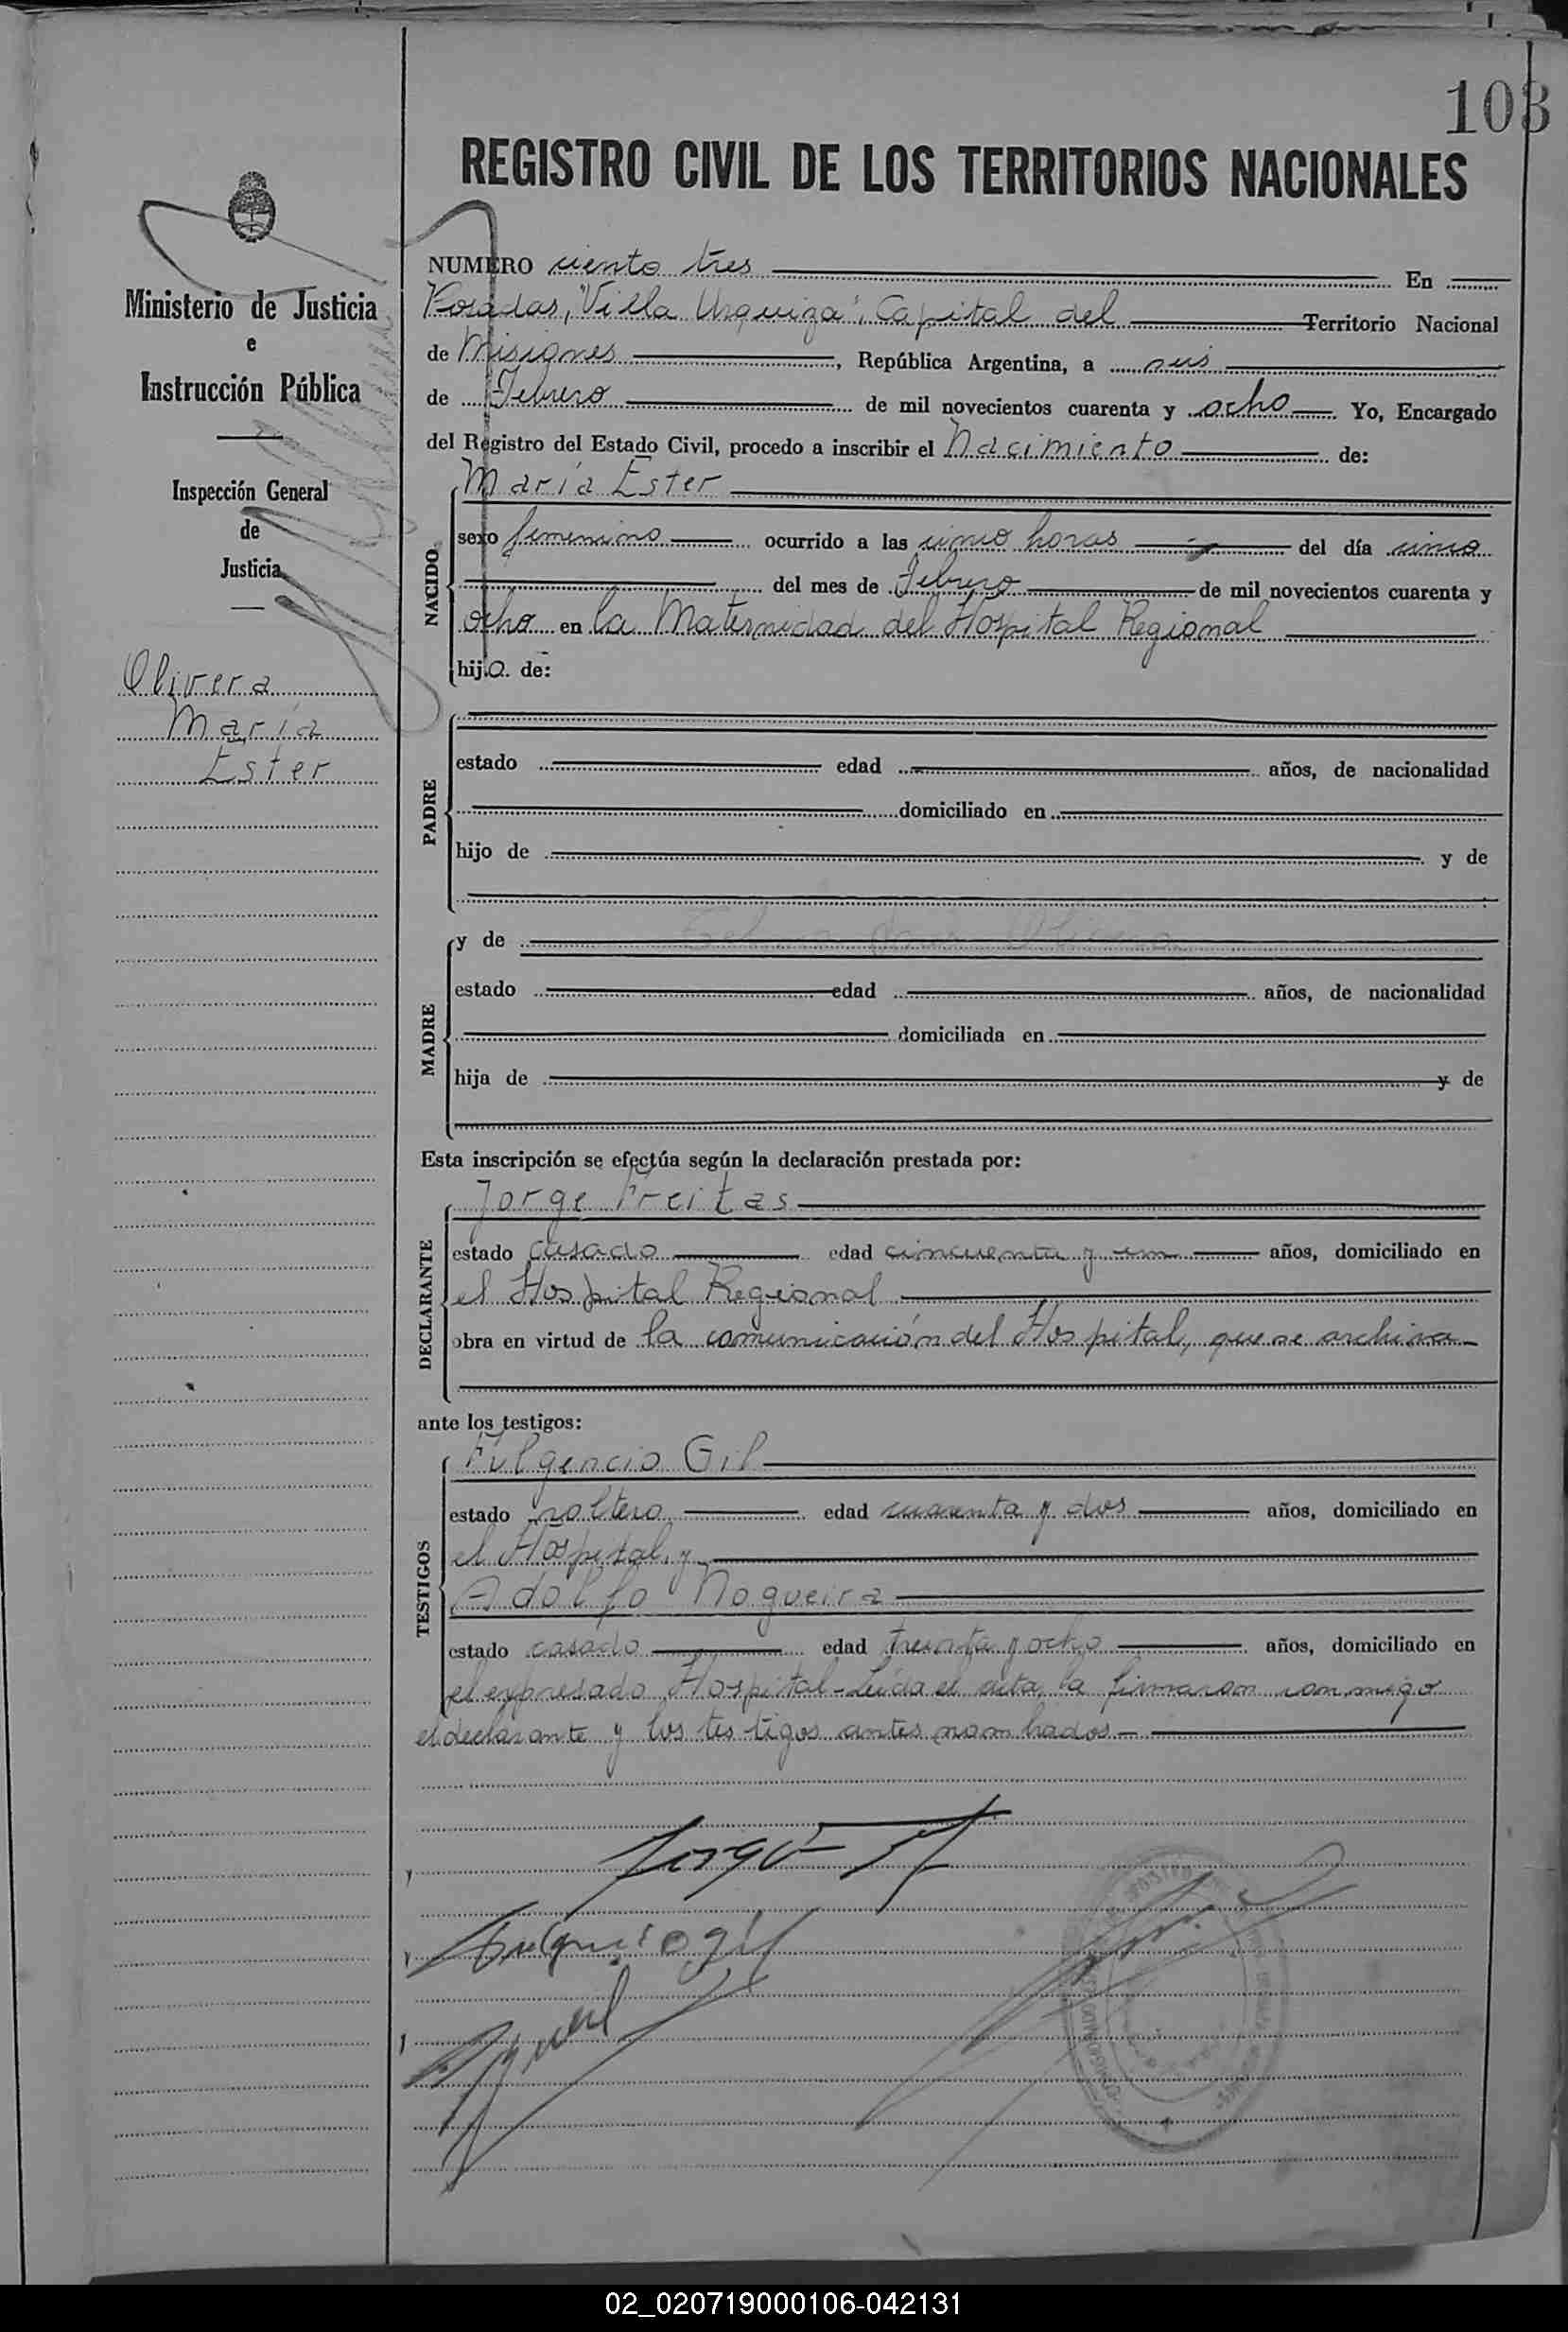 103
REGISTRO CIVIL DE LOS TERRITORIOS NACIONALES
Ministerio de Justicia
e
Instrucción Pública
Inspección General
de
Justicia
Olivera
María
Ester
NUMERO ciento tres En
Posadas, "Villa Urquiza", Capital del Territorio Nacional
de Misiones, República Argentina, a seis
de Febrero de mil novecientos cuarenta y ocho Yo, Encargado
del Registro del Estado Civil, procedo a inscribir el Nacimiento de:
NACIDO
María Ester
sexo femenino ocurrido a las cinco horas del día cinco
del mes de Febrero de mil novecientos cuarenta y
ocho en la Maternidad del Hospital Regional
hija de:
PADRE
estado edad años, de nacionalidad
domiciliado en
hijo de y de
MADRE
y de
estado edad años, de nacionalidad
domiciliada en
hija de y de
Esta inscripción se efectúa según la declaración prestada por:
DECLARANTE
Jorge Freitas
estado casado edad cincuenta y un años, domiciliado en
el Hospital Regional
obra en virtud de la comunicación del Hospital, que se archiva
ante los testigos:
TESTIGOS
Fulgencio Gil
estado soltero edad cuarenta y dos años, domiciliado en
el Hospital, y
Adolfo Nogueira
estado casado edad treinta y ocho años, domiciliado en
el expresado Hospital - Leída el acta, la firmaron conmigo
el declarante y los testigos antes nombrados.-
02_020719000106-042131